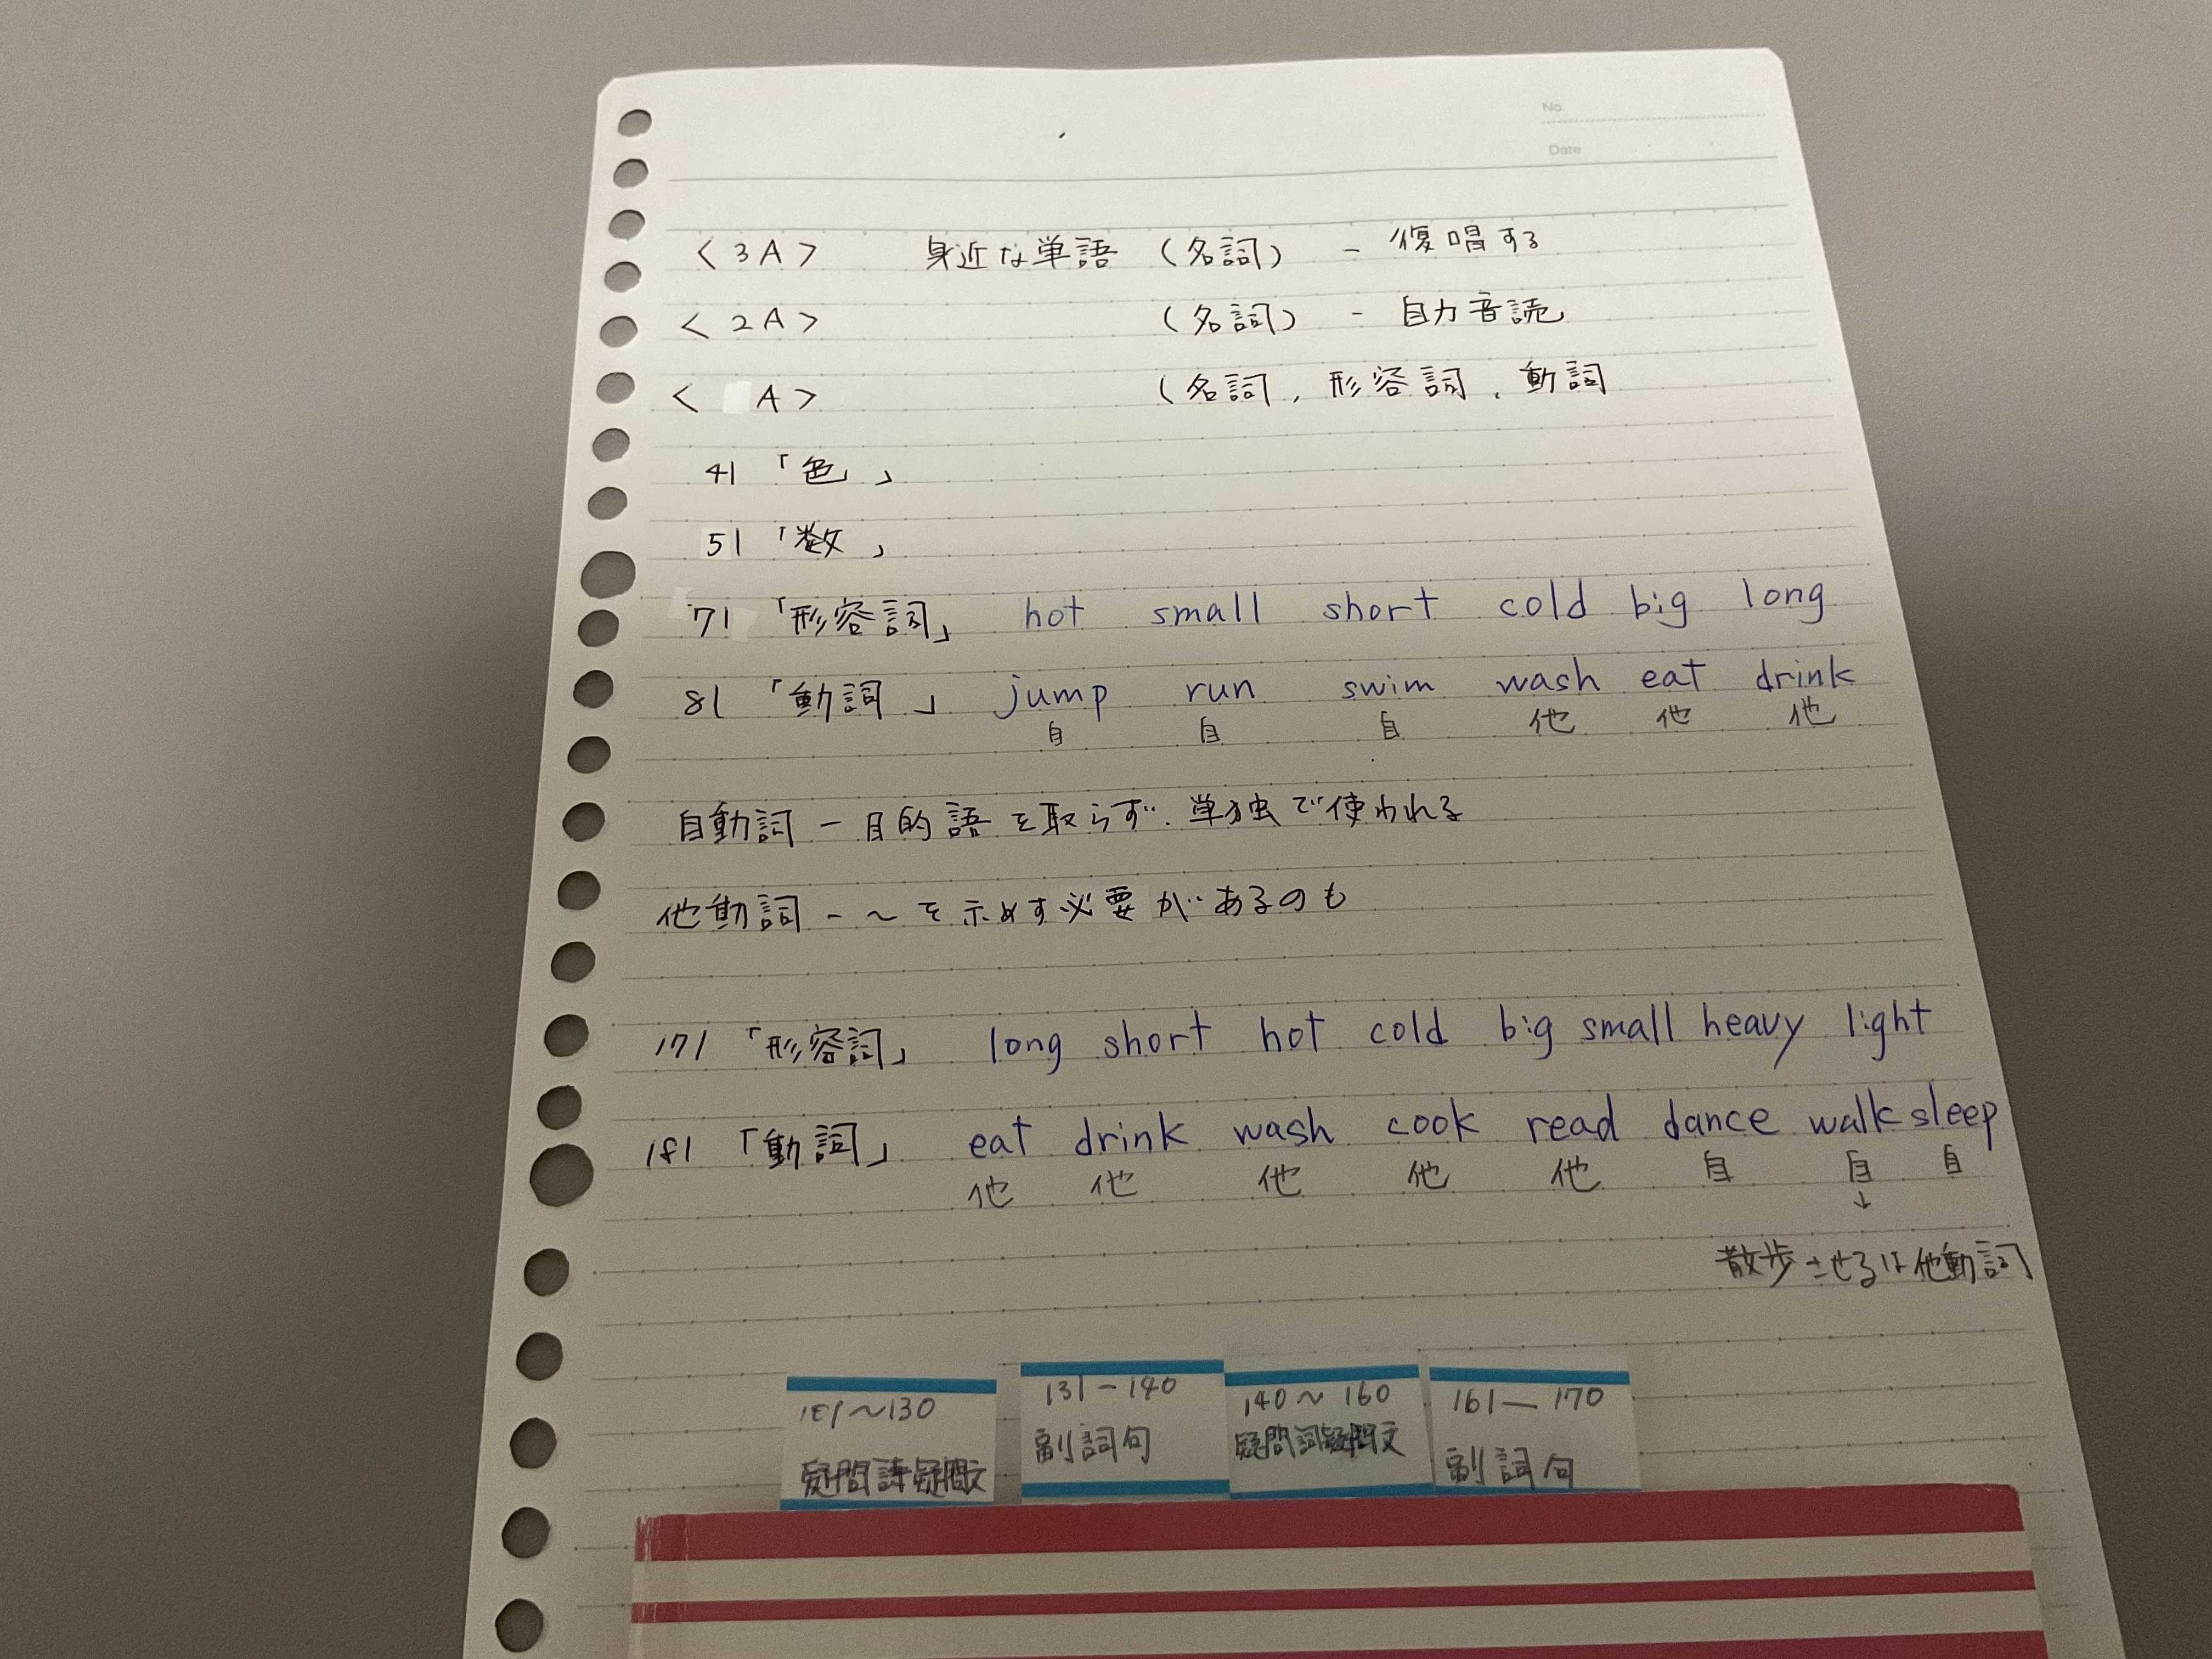 No.
Date
<3A> 身近な単語 (名詞) - 復唱する
<2A> (名詞) - 自力音読
< A> (名詞, 形容詞, 動詞
41 「色」
51 「数」
71 「形容詞」 hot small short cold big long
81 「動詞」 jump run swim wash eat drink
自 自 自 他 他 他
自動詞 - 目的語を取らず、単独で使われる
他動詞 - ~を示めす必要があるのも
171 「形容詞」 long short hot cold big small heavy light
181 「動詞」 eat drink wash cook read dance walk sleep
他 他 他 他 他 自 自 自
↓
散歩させるは他動詞
101~130
疑問詞疑問文
131-140
副詞句
140~160
疑問詞疑問文
161-170
副詞句